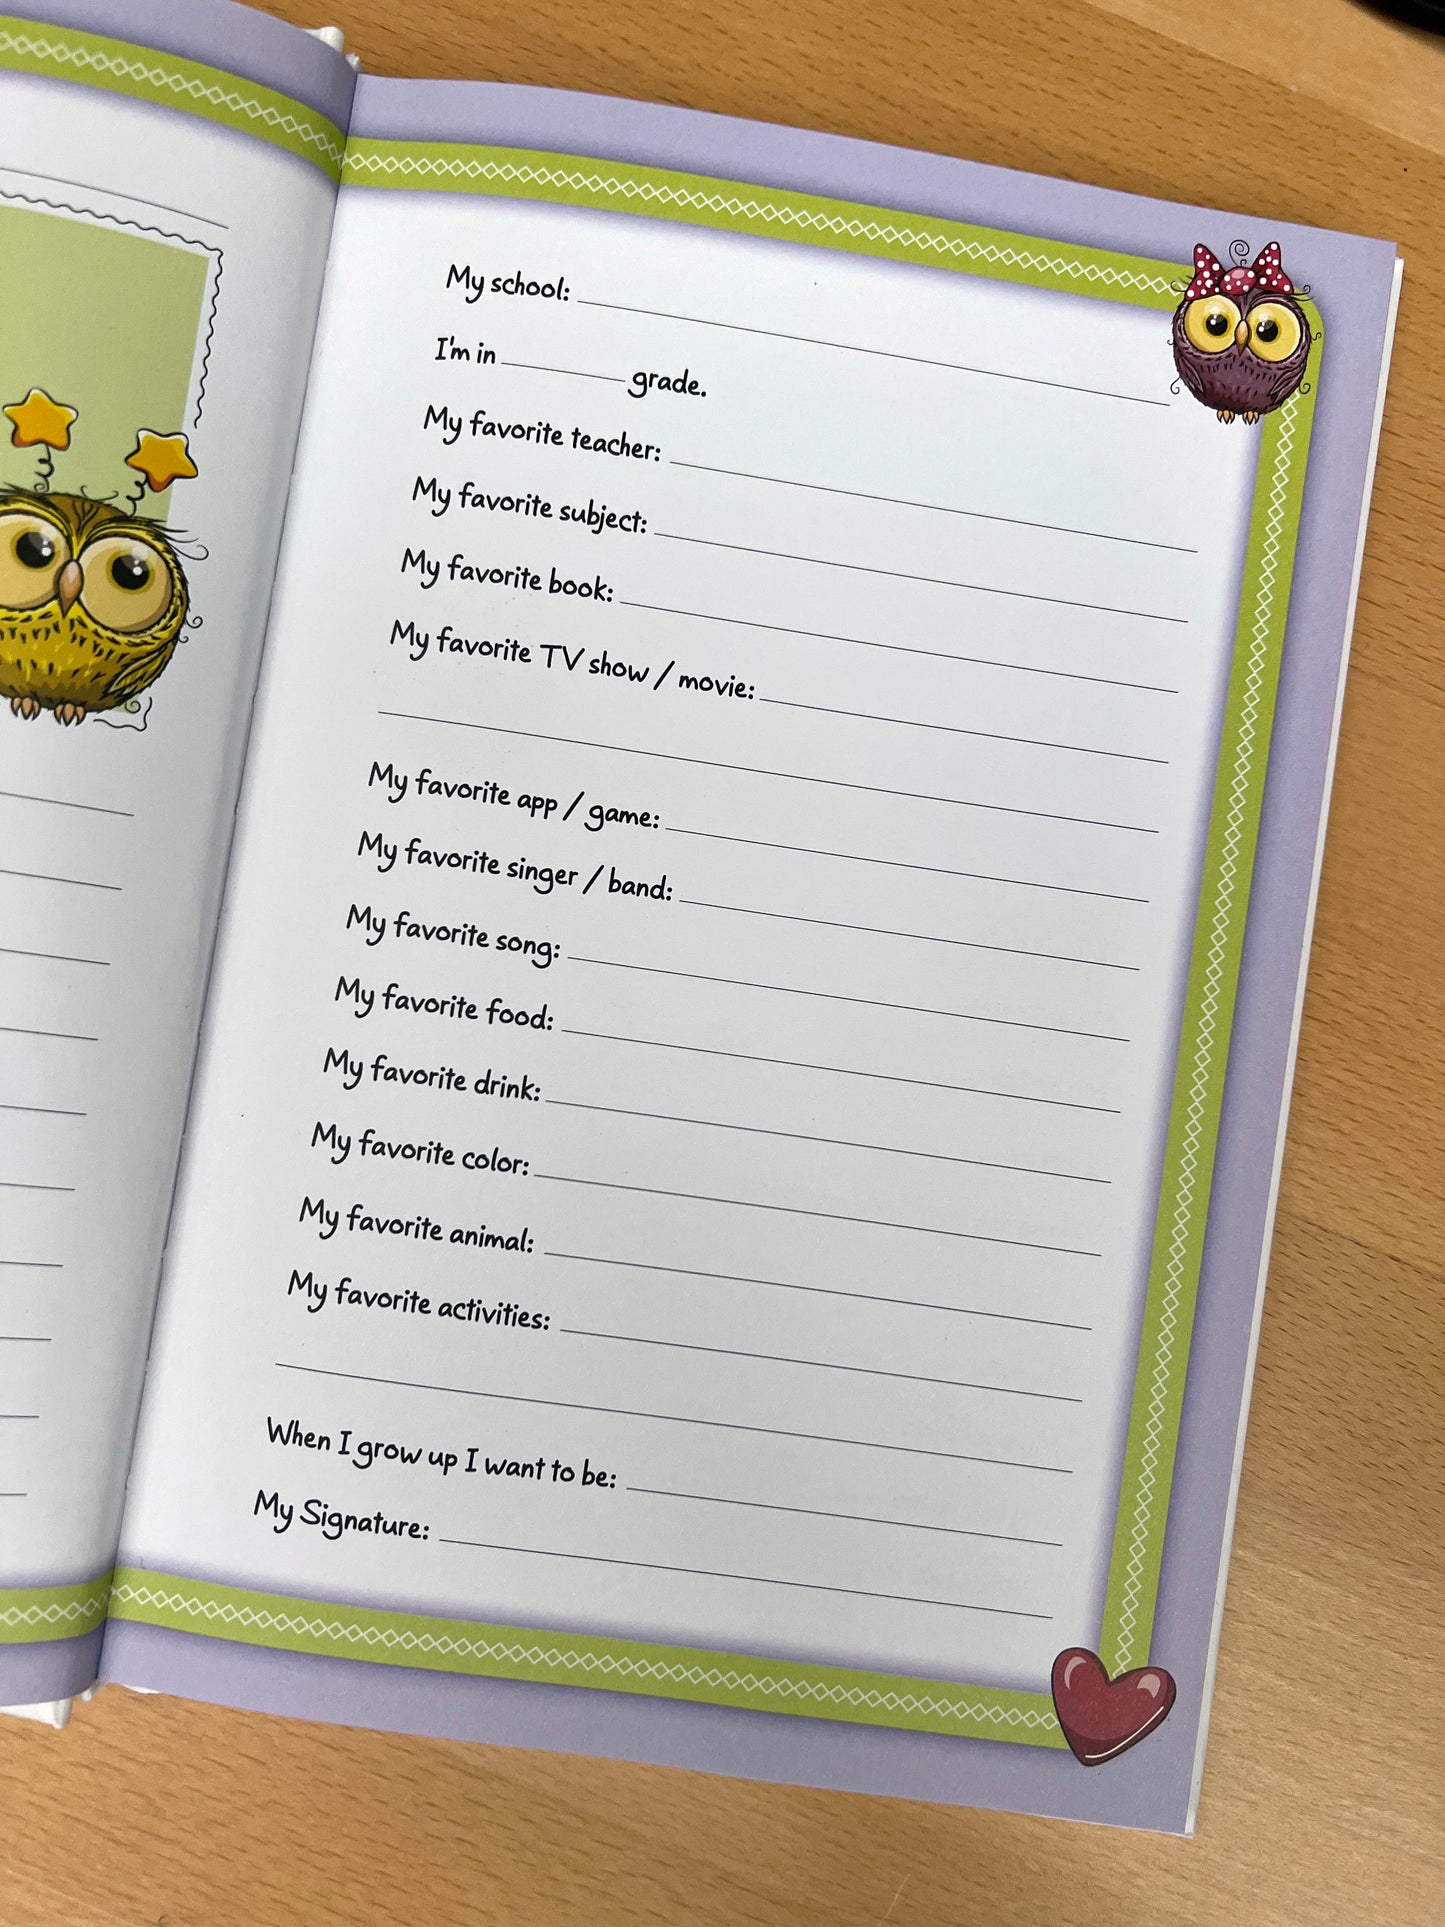 My school:
I'm in grade.
My favorite teacher:
My favorite subject:
My favorite book:
My favorite TV show / movie:
My favorite app / game:
My favorite singer / band:
My favorite song:
My favorite food:
My favorite drink:
My favorite color:
My favorite animal:
My favorite activities:
When I grow up I want to be:
My Signature: